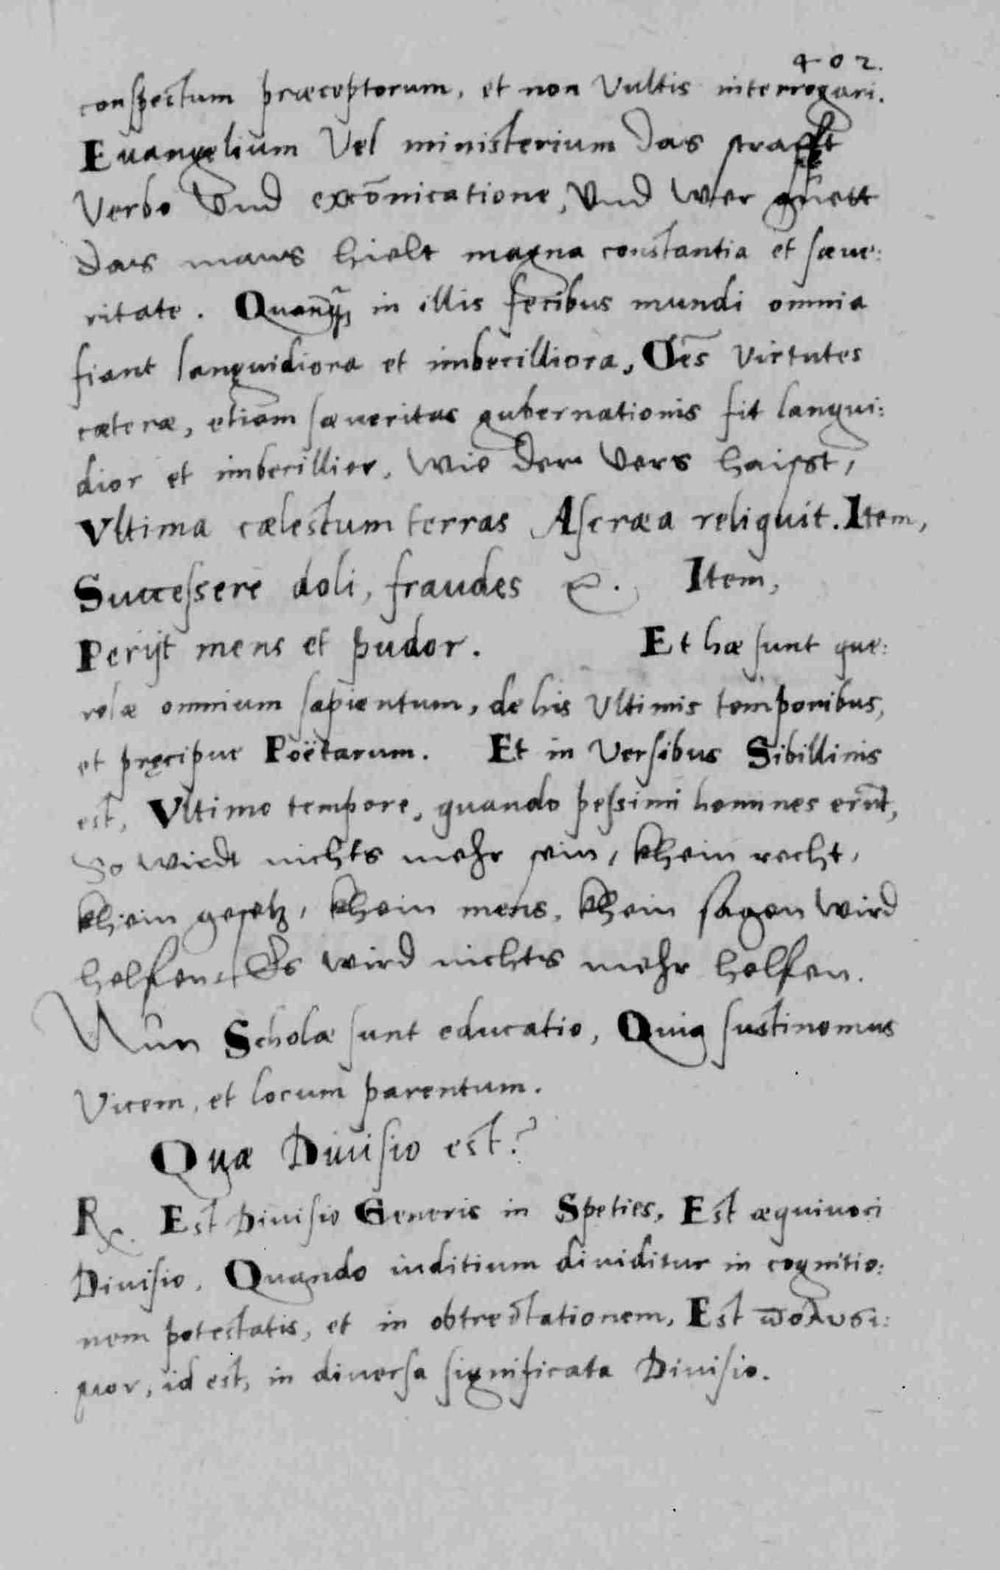 402.
conspectum præceptorum, et non Vultis interrogari.
Euangelium Vel ministerium das strafft
Verbo Vnd excōnicatione, Vnd wer guett
das mans hielt magna constantia et sæue:
ritate. Quanq̃ in illis fecibus mundi omnia
fiant languidiora et imbecilliora, Oēs Virtutes
cæteræ, etiam sæueritas gubernationis fit langui:
dior et imbecillior, wie der Vers haisst,
Vltima cælestum terras Ascræa reliquit. Item,
Successere doli, fraudes &. Item,
Perijt mens et pudor. Et hæ sunt que:
relæ omnium sapientum, de his Vltimis temporibus,
et pręcipue Poëtarum. Et in Versibus Sibillinis
est, Vltimo tempore, quando pessimi homines erūt,
So wirdt nichts mehr sein, khein recht,
khein gesetz, khein mens, khein sagen wird
helfen, Es wird nichts mehr helfen.
Nun Scholæ sunt educatio, Quia sustinemus
Vicem, et locum parentum.
Quæ Diuisio est?
R. Est Diuisio Generis in Speties, Est æquiuoci
Diuisio, Quando iuditium diuiditur in cognitio:
nem potestatis, et in obtrectationem, Est
id est, in diuersa significata Diuisio.